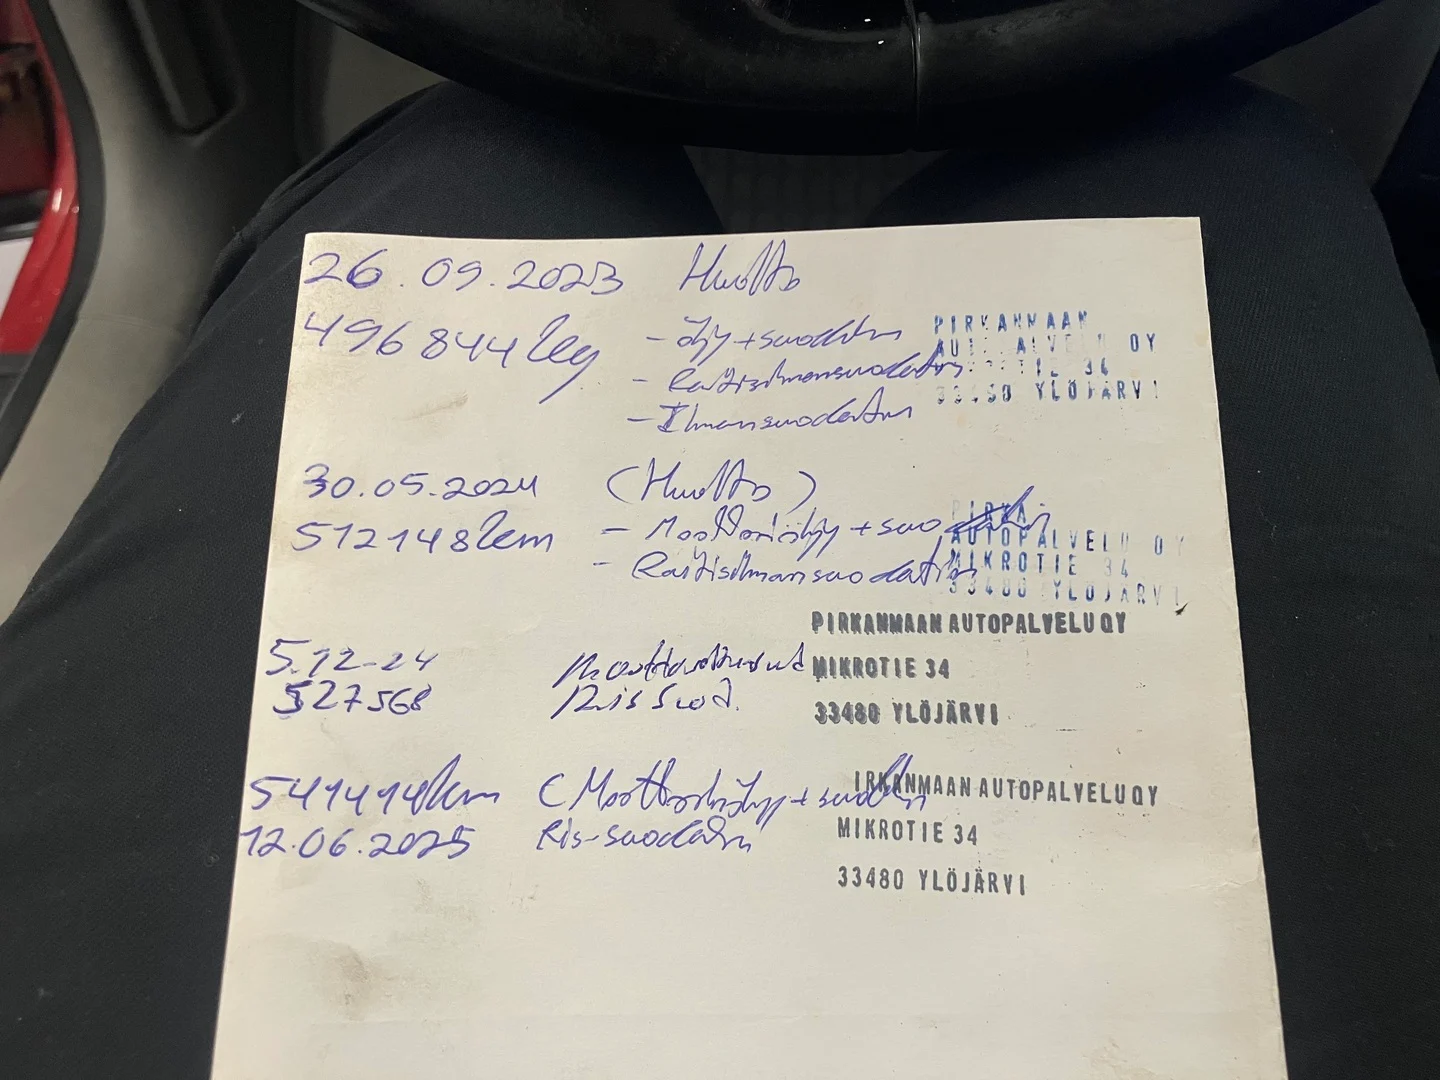 26.09.2023 Huolto
496844km
- öljy + suodatin
- Raitisilmansuodatin
- Ilmansuodatin
PIRKANMAAN
AUTOPALVELU OY
MIKROTIE 34
33480 YLÖJÄRVI
30.05.2024 (Huolto)
512148km - Moottoriöljy + suo
- Raitisilmansuodatin
PIRKA
AUTOPALVELU OY
MIKROTIE 34
33480 YLÖJÄRVI
PIRKANMAAN AUTOPALVELU OY
MIKROTIE 34
33480 YLÖJÄRVI
5.12-24
527568 Ris Suod.
541414km (Moottoriöljy + suodatin
12.06.2025 Ris-suodatin
IRKANMAAN AUTOPALVELU OY
MIKROTIE 34
33480 YLÖJÄRVI